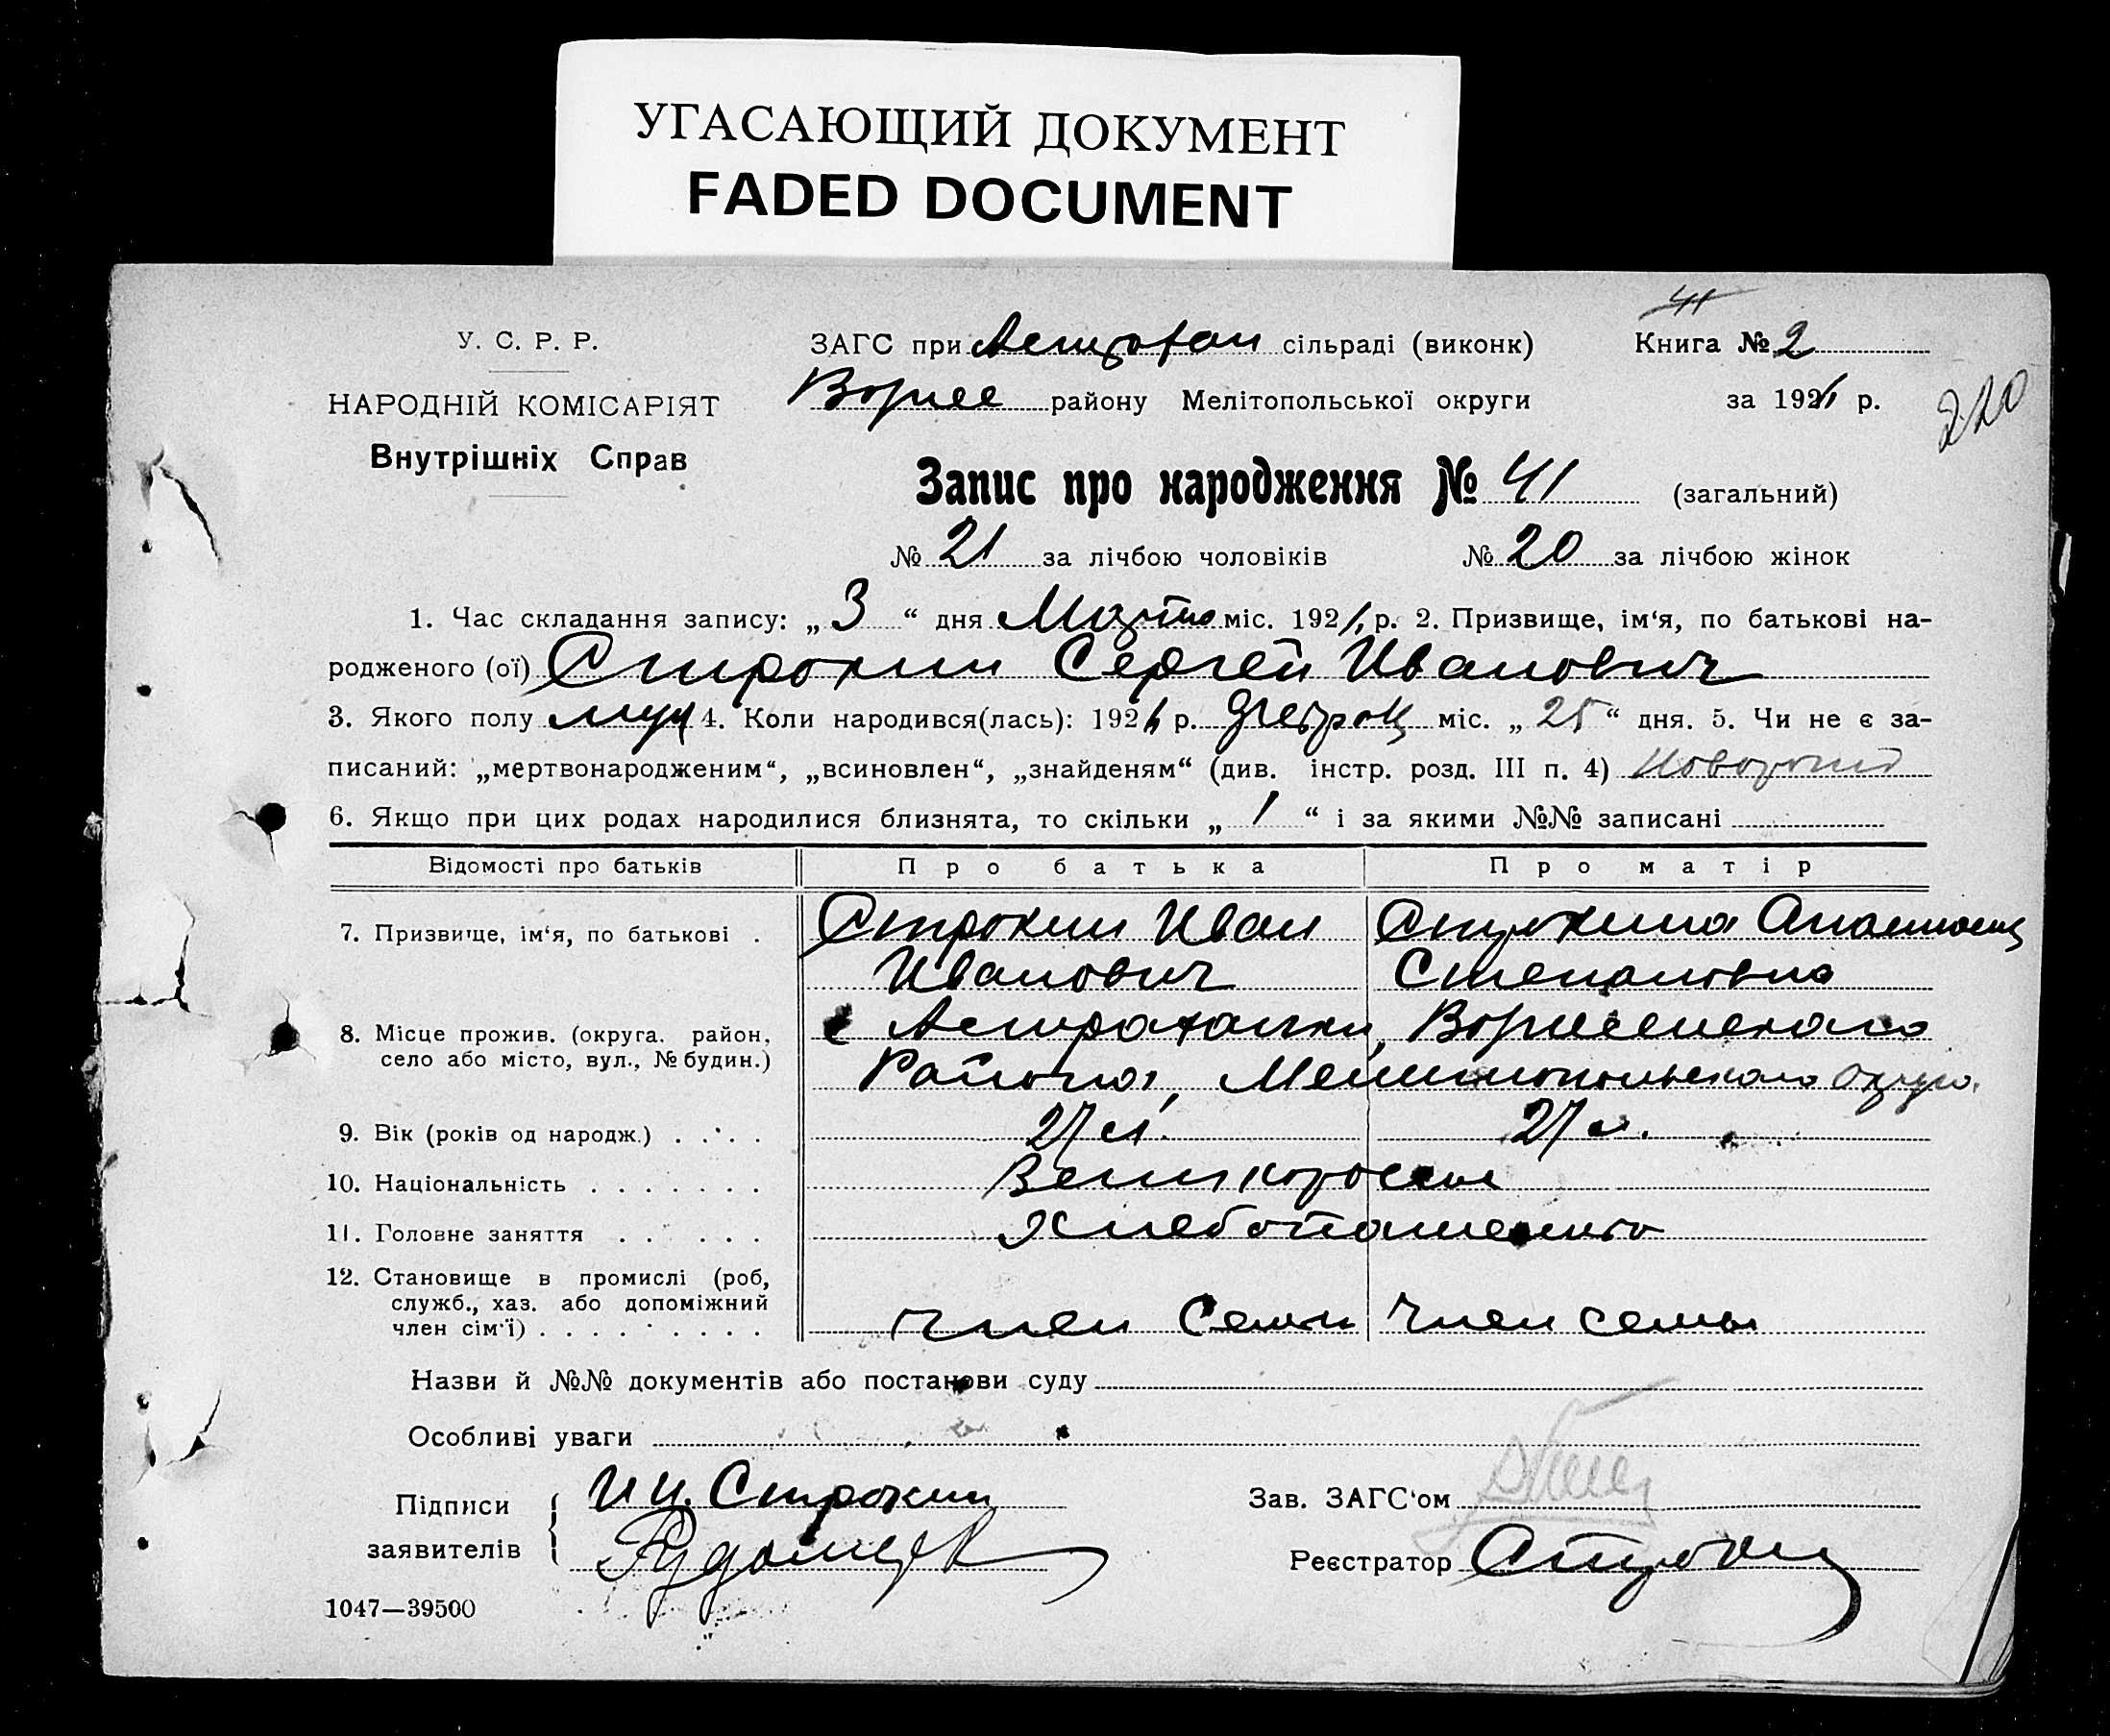 УГАСАЮЩИЙ ДОКУМЕНТ
FADED DOCUMENT
41
У. С. Р. Р.
ЗАГС при Астрохан сільраді (виконк)
Книга № 2
НАРОДНІЙ КОМІСАРІЯТ
району Мелітопольської округи
за 192 р.
220
Внутрішніх Справ
Запис про народження № 41 (загальний)
№ 21 за лічбою чоловіків № 20 за лічбою жінок
1. Час складання запису: „ 3 “ дня Марта міс. 192 р. 2. Призвище, ім‘я, по батькові на-
родженого (ої) Строкин Сергей Иванович
3. Якого полу муж 4. Коли народився(лась): 192 р. міс. „ 25 “ дня. 5. Чи не є за-
писаний: „мертвонародженим“, „всиновлен“, „знайденям“ (див. інстр. розд. III п. 4)
6. Якщо при цих родах народилися близнята, то скільки „ 1 “ і за якими №№ записані
Відомості про батьків Про батька Про матір
7. Призвище, ім‘я, по батькові . Строкин Иван Строкина Анастасия
Иванович Степановна
8. Місце прожив. (округа. район, с Астраханки,
село або місто, вул., № будин.) Района, Мелитопольского округа.
9. Вік (років од народж.) . . . . 27 л. 27 л.
10. Національність . . . . . . . Великороссы
11. Головне заняття . . . . . Хлебопашество
12. Становище в промислі (роб,
служб., хаз. або допоміжний
член сім‘ї) . . . . . . . . . член семьи член семьи
Назви й №№ документів або постанови суду
Особливі уваги
Підписи И И. Строкин
Зав. ЗАГС‘ом
заявителів
Реєстратор
1047—39500